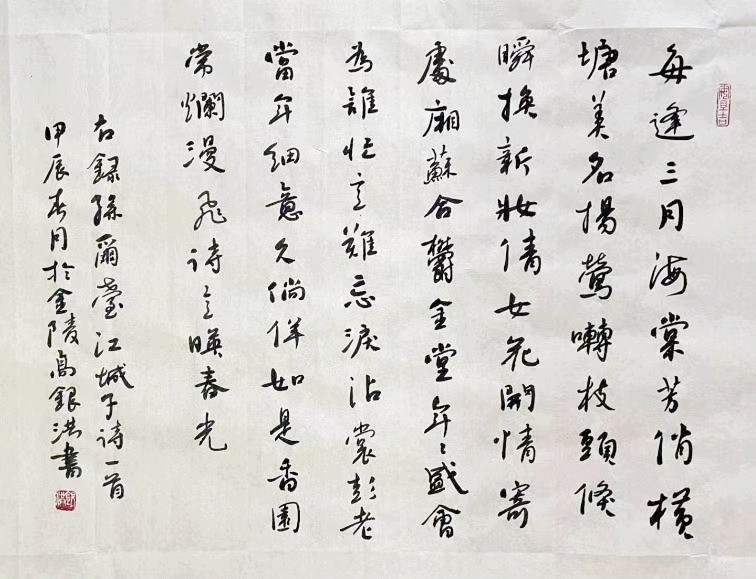 每逢三月海棠芳俏橫
塘美名揚鶯囀枝頭倏
瞬換新妝倩女花開情寄
處廂蘇合鬱金堂年々盛會
為誰忙意難忘淚沾裳彭老
當年細意久倘佯如是香園
常爛漫飛詩意暎春光
右錄孫爾臺江城子詩一首
甲辰春月於金陵高銀洪書